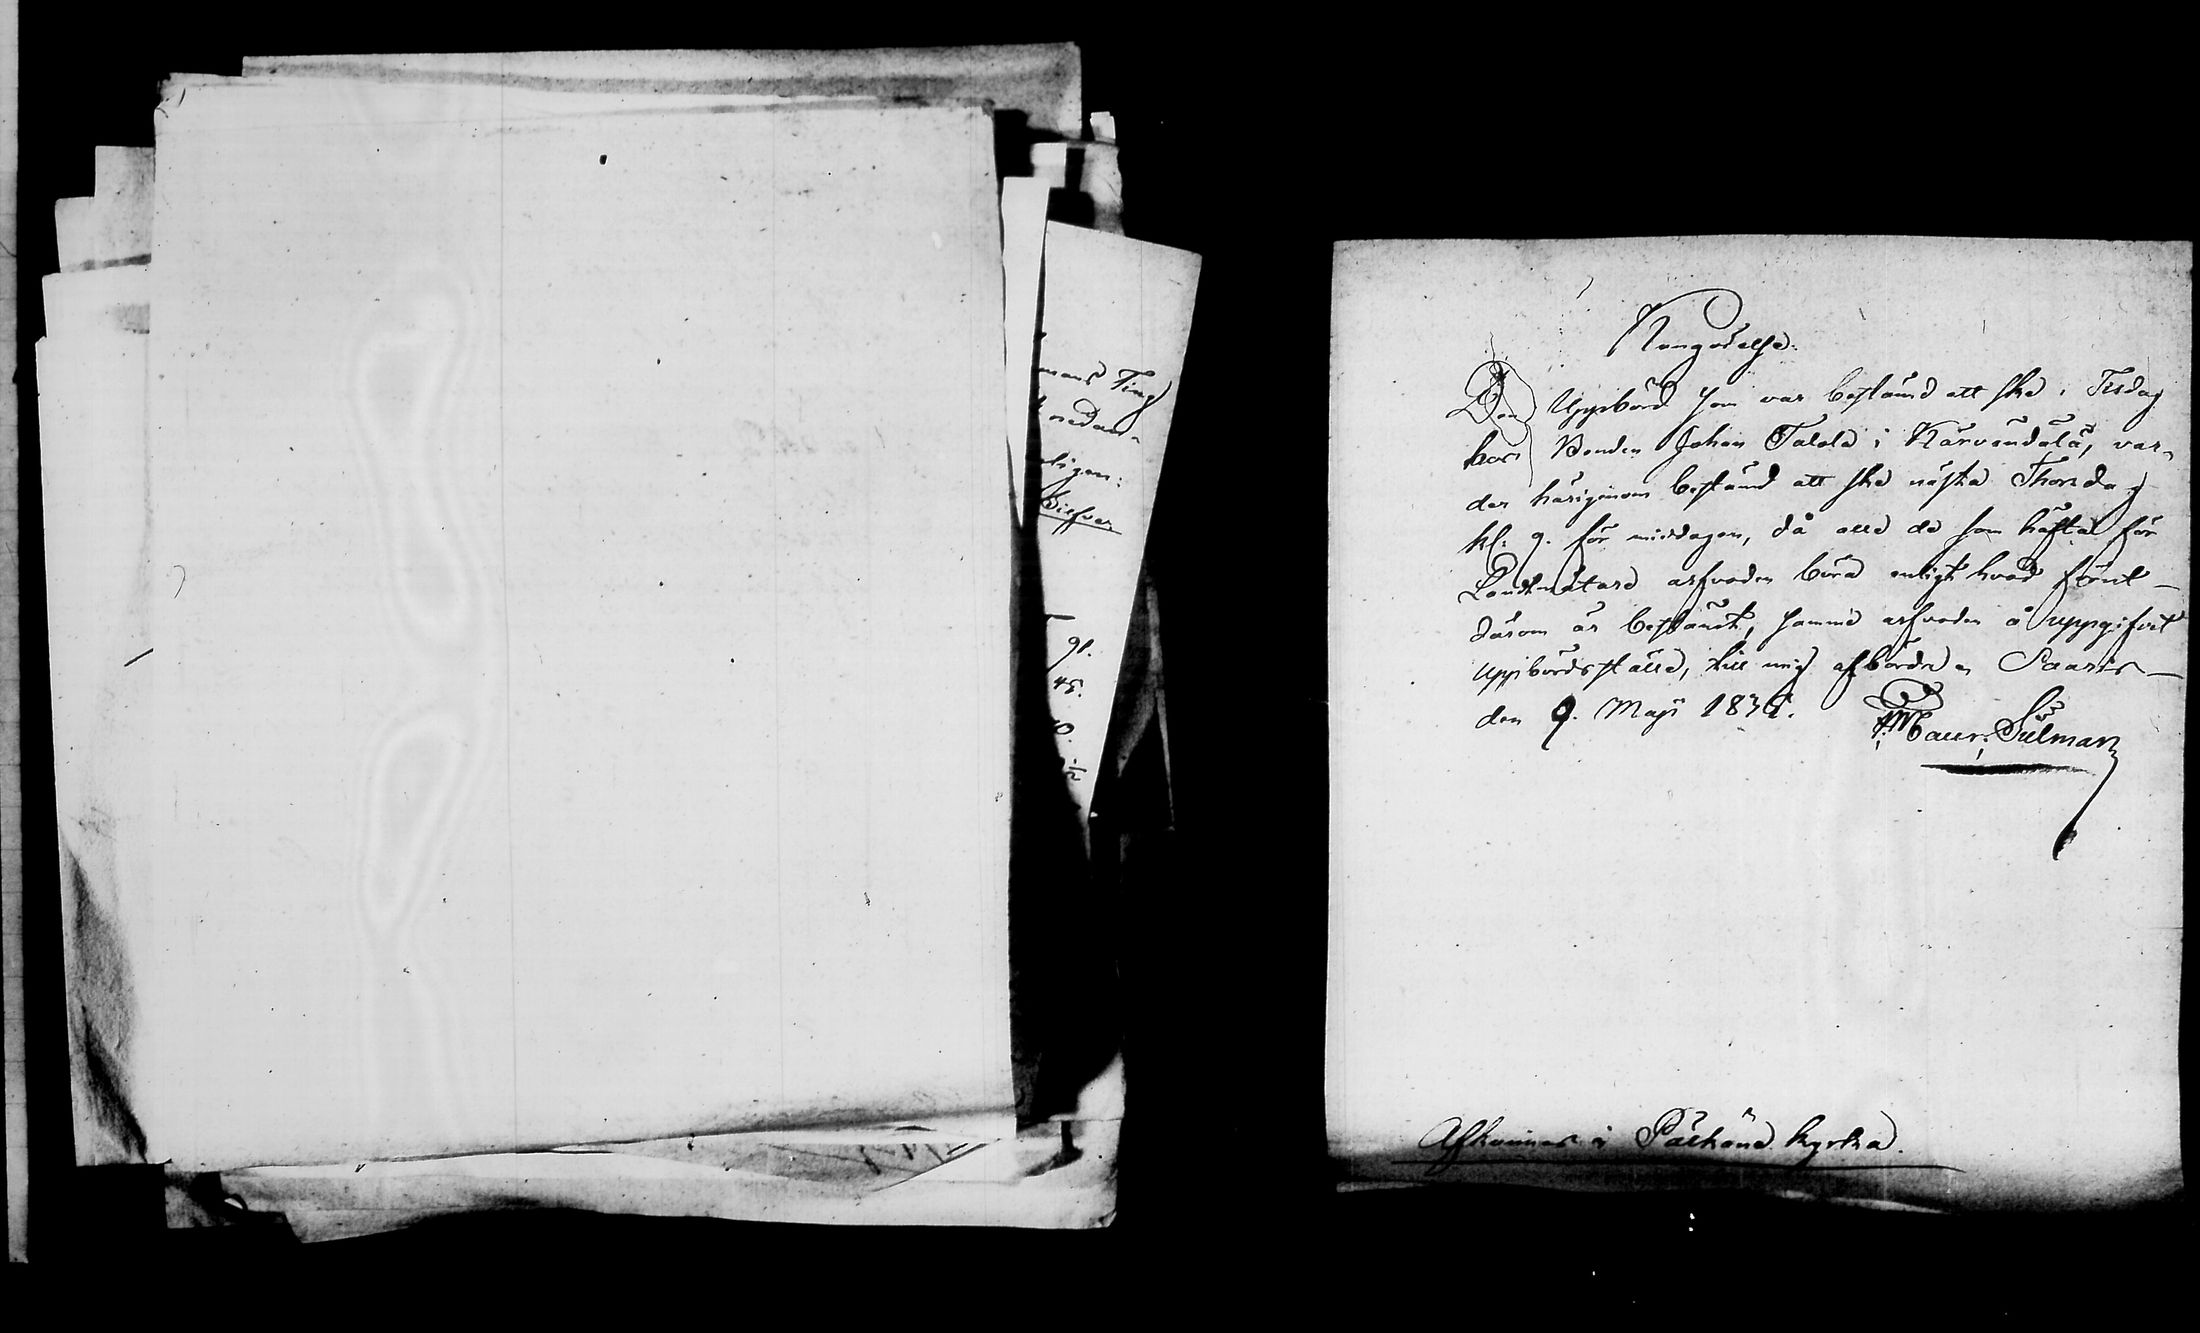 mans Ting
nedan-
ligen:
91.
45.
10.
½
Kungörelse.
Den Uppbörd som var bestämd att ske i Tisdag
hos Bonden Johan Talola i Karvendala, var-
der härigenom bestämd att ske nästa Thorsdag
kl. 9. för middagen, då alla de som häfta för
Landtmätare arfvoden böra enligt hvad förut
därom är bestämdt, samma arfvoden å uppgifvet
uppbördsställe, till mig afbörda. Saaris
den 9. Maji 1834.
Maur: Silman
Afkunnas i Pälkäne kyrka.